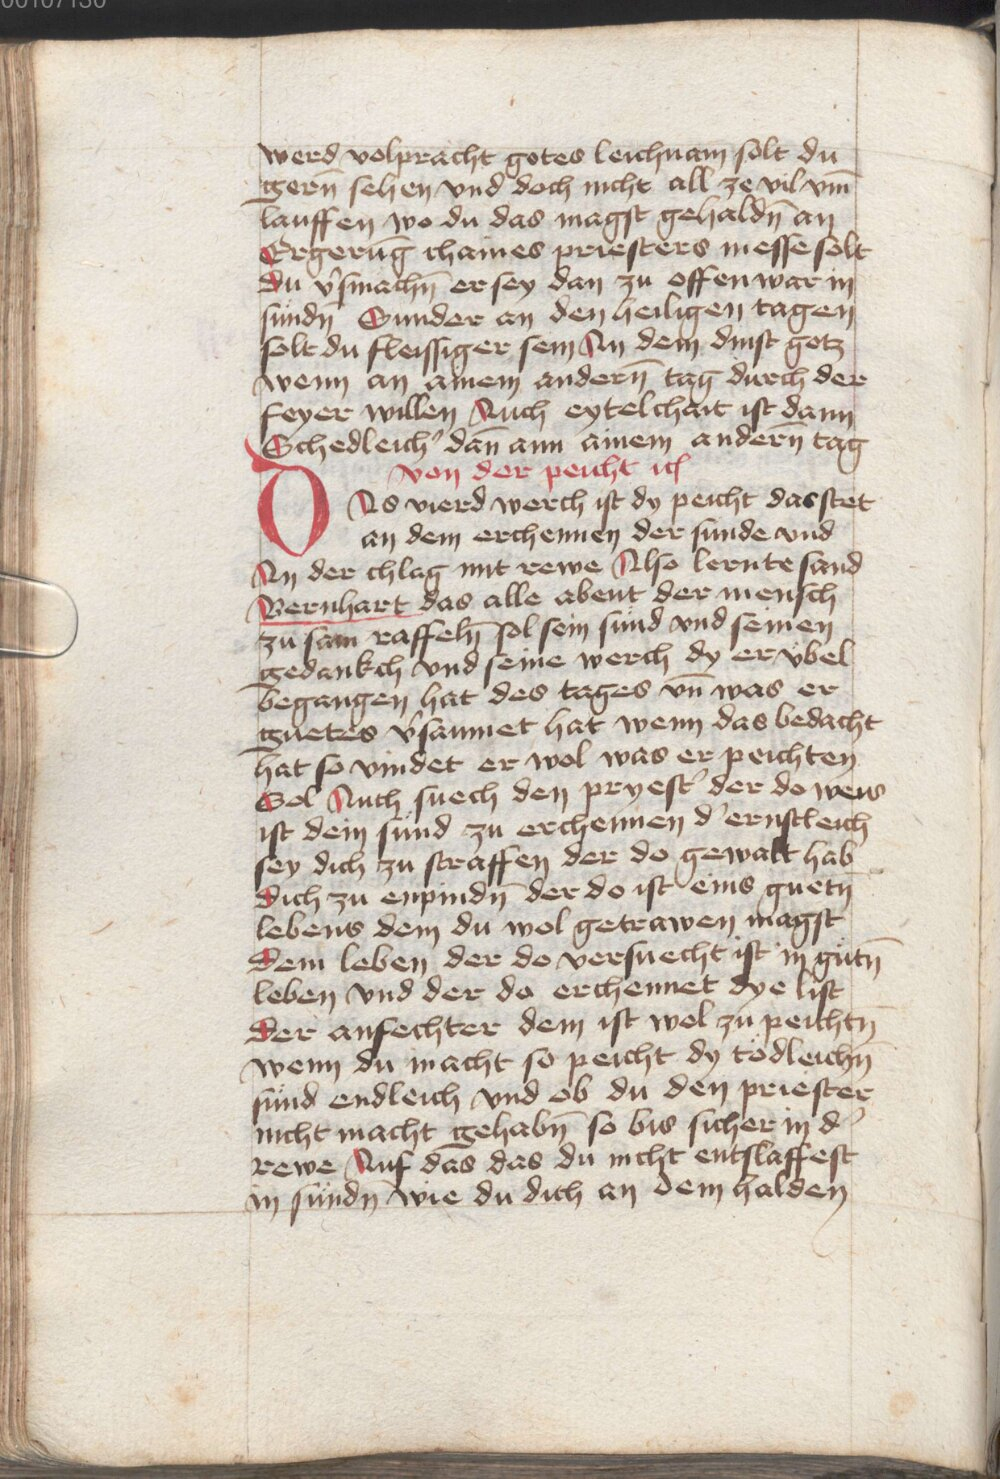 werd volpracht gotes leichnam solt du
gern̄ sehen vnd doch nicht all ze vil vm̄
lauffen wo du das magst gehaldn̄ an
Ergerūg chaines priesters messe solt
du v̓smachn̄ er sey dan zu offenwar in
sündn̄ Sunder an den heiligen tagen
solt du fleissiger sein An dem dinst gotz
wenn an ainem andern̄ tag durch der
feyer willen Auch eytelchait ist dann
Schedleich̓ dan̄ ann ainem andern̄ tag
von der peicht icḣ
DAs vierd werch ist dy peicht das stet
an dem erchennen der sunde vnd
An der chlag mit rewe Also lernte sand
Bernhart das alle abent der mensch
zu sam raffeln̄ sol sein sünd vnd seinen
gedankch vnd seine werch dy er vbel
begangen hat des tages vn̄ was er
guetes v̓saumet hat wenn das bedacht
hat so vindet er wol was er peichten
Sol Auch suech den pryest̓ der do weis
ist dein sünd zu erchennen d̓ ernstleich
sey dich zu straffen der do gewalt hab
dich zu enpindn̄ der do ist eins guetn̄
lebens dem du wol getrawen magst
dein leben der do versuecht ist in gutn̄
leben vnd der do erchennet dye list
der anfechter dem ist wol zu peichtn̄
wenn du macht so peicht dy tödleichn̄
sünd endleich vnd ob du den priester
nicht macht gehabn̄ so bis sicher in d̓
rewe Auf das das du nicht entslaffest
in sündn̄ wie du dich an dem halden